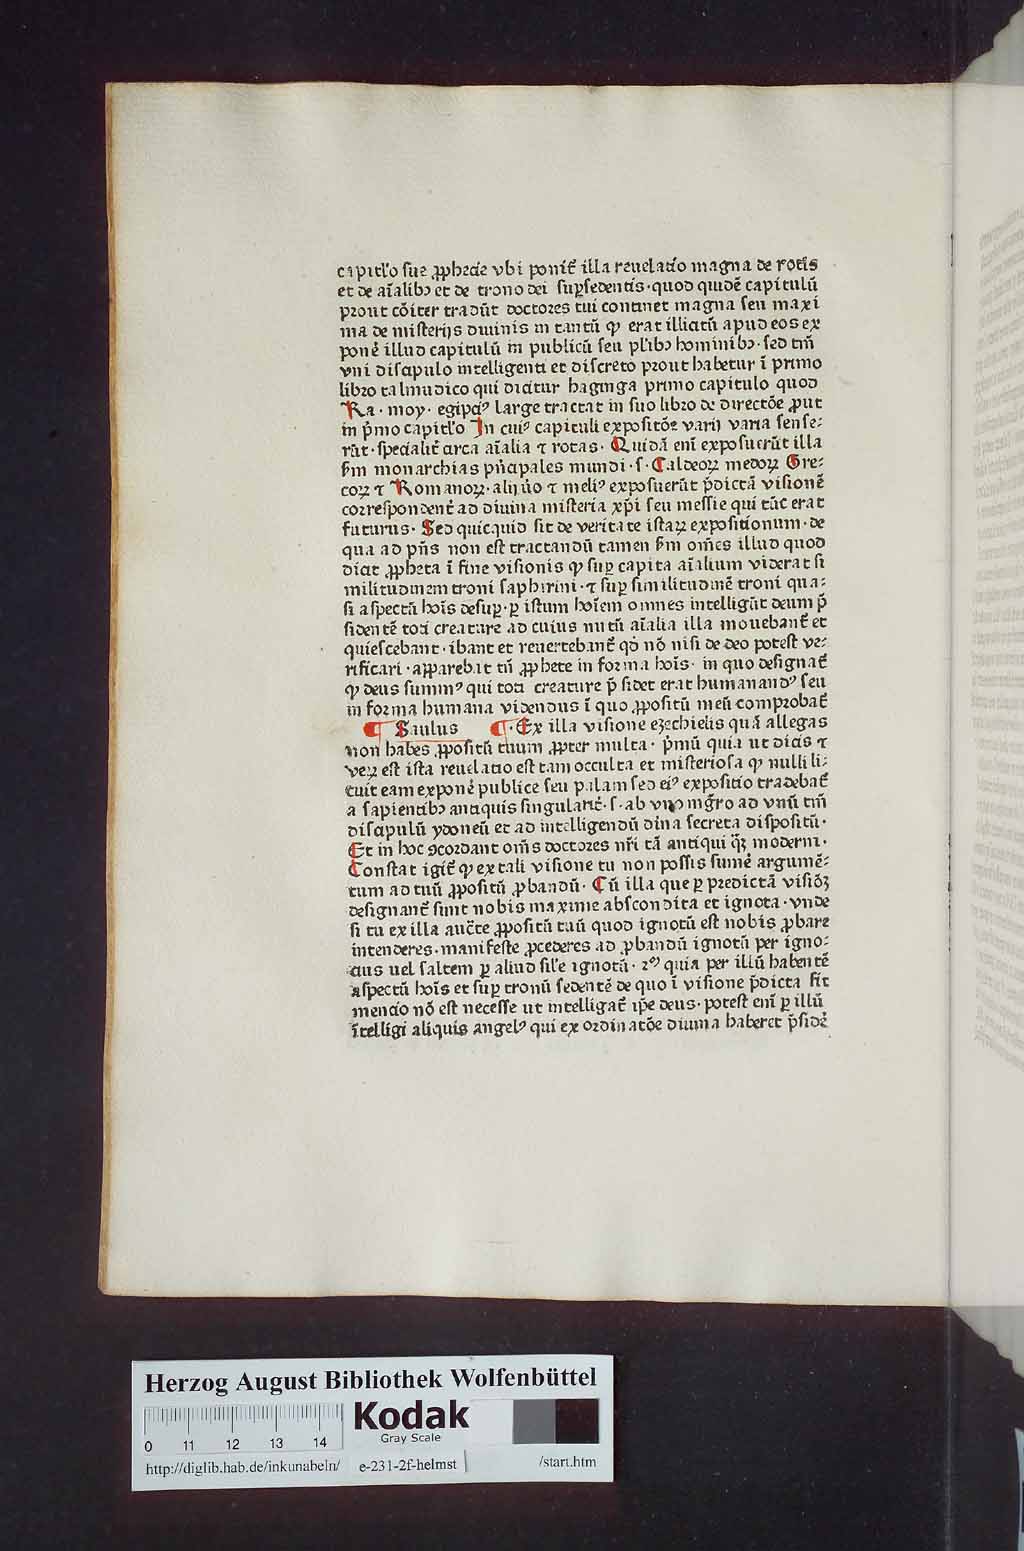 capitl'o sue ꝓphecie vbi ponit᷑ illa reuelatio magna de rotis
et de aīalibꝯ et de trono dei supersedentis · quod quidē capitulū
prout cōiter tradūt doctores tui continet magna seu maxi
ma de misterijs diuinis in tantū ꝙ erat illicitū apud eos ex
ponē illud capitulū in publicū seu pl'ibꝯ hominibꝯ · sed tm̄
vni discipulo intelligenti et discreto prout habetur ī primo
libro talmudico qui dicitur haginga primo capitulo quod
Ra · moy · egipciꝰ large tractat in suo libro de directōe ꝓut
in p̄mo capitl'o In cuiꝰ capituli expositōe varij varia sense⸗
rūt · specialit᷑ circa aīalia ⁊ rotas · Quidā eni᷑ exposuerūt illa
scd'm monarchias pn̄cipales mundi · s · Caldeoꝝ medoꝝ Gre⸗
coꝝ ⁊ Romanoꝝ · alij u̇o ⁊ meliꝰ exposuerūt p̄dictā visionē
correspondent᷑ ad diuina misteria xp̄i seu messie qui tūc erat
futurus · Sed quicquid sit de veritate istaꝝ expositionum · de
qua ad pn̄s non est tractandū tamen scd'm om̄es illud quod
dicit ꝓpheta ī fine visionis ꝙ suꝑ capita aīalium viderat si
militudinem troni saphirini · ⁊ suꝑ similitudinē troni qua⸗
si aspectū hoīs desuꝑ · ꝑ istum hoīem omnes intelligūt deum p̄
sidentē toti creature ad cuius nutū aīalia illa mouebant᷑ et
quiescebant · ibant et reuertebant᷑ qd̄ nō nisi de deo potest ve⸗
rificari · apparebat tn̄ ꝓphete in forma hoīs · in quo designat᷑
ꝙ deus summꝰ qui toti creature p̄sidet erat humanandꝰ seu
in forma humana videndus ī quo ꝓpositū meū comprobat᷑
¶ Saulus ¶ · Ex illa visione ezechielis quā allegas
non habes ꝓpositū tuum ꝓpter multa · p̄mū quia ut dicis ⁊
veꝝ est ista reuelatio est tam occulta et misteriosa ꝙ nulli li⸗
cuit eam exponē publice seu palam sed eiꝰ expositio tradebat᷑
a sapientibꝯ antiquis singularit᷑ · s · ab vno mg̅ro ad vnū tm̄
discipulū ydoneū et ad intelligendū diīna secreta dispositū ·
Et in hoc ꝯcordant om̄s doctores nr̄i tā antiqui qͣꝫ moderni ·
Constat igit᷑ ꝙ ex tali visione tu non possis sumē argumē⸗
tum ad tuū ꝓpositū ꝓbandū · Cū illa que ꝑ predictā visiōꝫ
designant᷑ sunt nobis maxime abscondita et ignota · vnde
si tu ex illa auct̄e ꝓpositū tuū quod ignotū est nobis ꝓbare
intenderes · manifeste ꝓcederes ad ꝓbandū ignotū per igno⸗
cius uel saltem ꝑ aliud sil'e ignotū · 2ᵒ quia per illū habentē
aspectū hoīs et suꝑ tronū sedentē de quo ī visione p̄dicta fit
mencio nō est necesse ut intelligat᷑ ip̄e deus · potest eni᷑ ꝑ illū
ītelligi aliquis angelꝰ qui ex ordinatōe diuina haberet p̄sidē
Herzog August Bibliothek Wolfenbüttel
0 11 12 13 14
Kodak
Gray Scale
http://diglib.hab.de/inkunabeln/ e-231-2f-helmst /start.htm